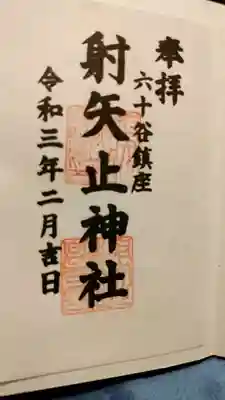 奉拝
六十谷鎮座
射矢止神社
令和三年二月吉日